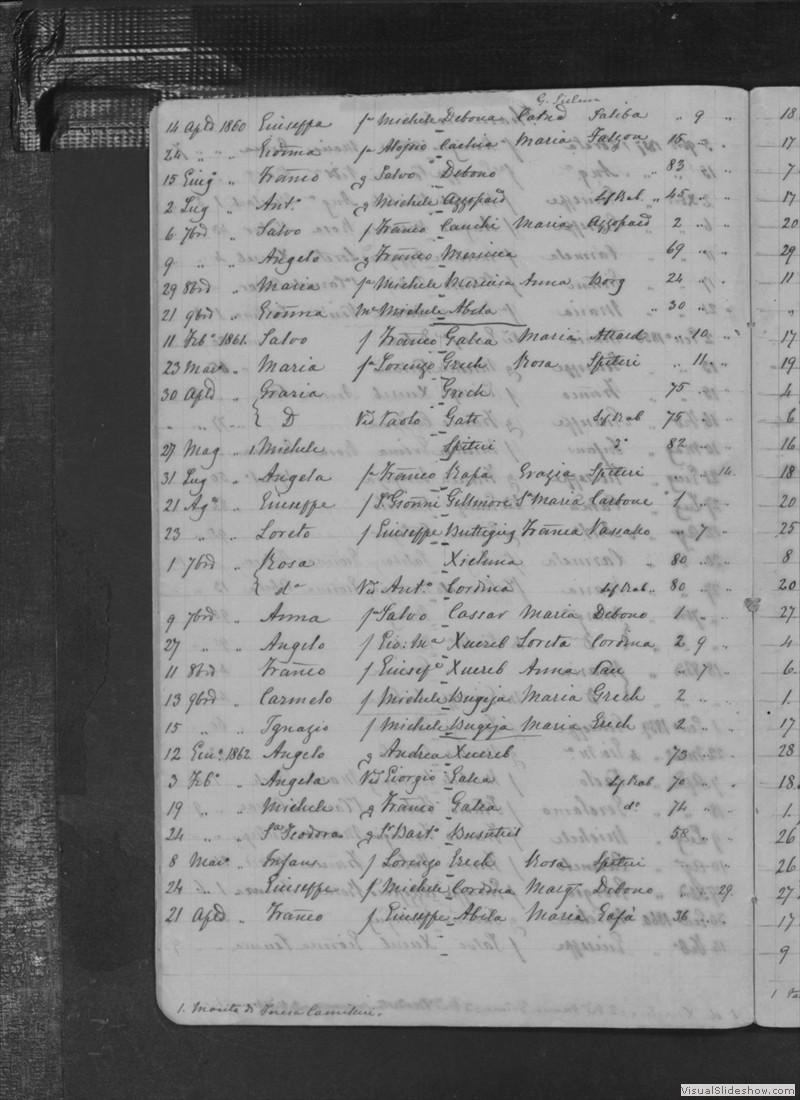 14 Aple 1860 Giuseppa fa Michele Debono Catna Saliba " 9 "
24 " " Gioãnna fa Aloisio Cachia Maria Falzon 15 " "
15 Giugo " Franco g Salvo Debono " 83 "
2 Lug " Anto g Michele Azzopard " 45 "
6 7bre " Salvo f Franco Cauchi Maria Azzopard 2 " "
9 " " Angelo g Franco Mercieca 69 " "
29 8bre " Maria fa Michele Mercieca Anna Borg 24 " "
21 9bre " Gioãnna Michele Abela " 30 "
11 Febo 1861. Salvo f Franco Galea Maria Attard " 10 "
23 Maro " Maria fa Lorenzo Grech Rosa Spiteri " 11 "
30 Aple " Grazia Grech 75 "
" " { D Vedo Paolo Gatt 75 "
27 Mag " 1. Michele Spiteri do 82 "
31 Lug " Angela fa Franco Rapa Grazia Spiteri " " 14
21 Ago " Giuseppe f Sr Gioãnni Gillmore Sa Maria Carbone 1 "
23 " " Loreto f Giuseppe Buttigieg Franca Vassallo " 7 "
1 7bre " Rosa Xicluna " 80 "
{ da Ved Anto Cordina " 80 "
9 7bre " Anna fa Salvo Cassar Maria Debono 1 " "
27 " " Angelo f Gio: Ma Xuereb Loreta Cordina 2 9 "
11 8bre " Franco f Giusepe Xuereb Anna " 7 "
13 9bre " Carmelo f Michele Bugeja Maria Grech 2 "
15 " " Ignazio f Michele Bugeja Maria Grech 2 " "
12 Gino 1862 Angelo g Andrea Xuereb 73 "
3 Febo " Angela Ved Giorgio Galea 70 "
19 " " Michele g Franco Galea do 74 "
24 " " Sa Teodora g Sr Barto Busuttil 58 "
8 Maro " Infans f Lorenzo Grech Rosa Spiteri
24 " " Giuseppe f Michele Cordina Marga Debono " 29.
21 Aple " Franco f Giuseppe Abela Maria Gafà 36 "
1. Marito di Teresa Camilleri.
18
17
7
17
20
29
11
"
17
19
4
6
16
18
20
25
8
20
27
4
6.
1.
17
28
18.
1.
26
26
27
17
9
1
VisualSlideshow.com